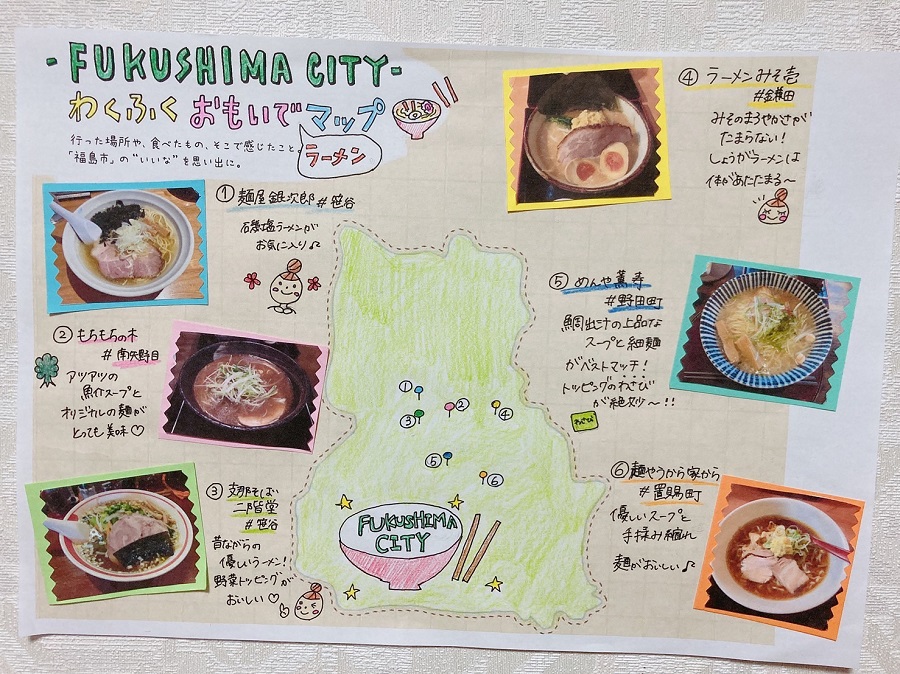 -FUKUSHIMA CITY-
わくふく おもいで マップ
行った場所や、食べたもの、そこで感じたこと
「福島市」の"いいな"を思い出に。
ラーメン
① 麺屋 銀次郎 #笹谷
石磯塩ラーメンが
お気に入り♫
② もちもちの木
#南矢野目
アツアツの
魚介スープと
オリジナルの麺が
とっても美味♡
③ 支那そば
二階堂
#笹谷
昔ながらの
優しいラーメン!
野菜トッピングが
おいしい♡
④ ラーメンみそ壱
#鎌田
みそのまろやかさが
たまらない!
しょうがラーメンは
体があたたまる～
⑤ めんや薫寿
#野田町
鯛出汁の上品な
スープと細麺
がベストマッチ!
トッピングのわさび
が絶妙～!!
わさび
⑥ 麺やうから家から
#置賜町
優しいスープと
手揉み縮れ
麺がおいしい♪
①
②
③
④
⑤
⑥
FUKUSHIMA
CITY